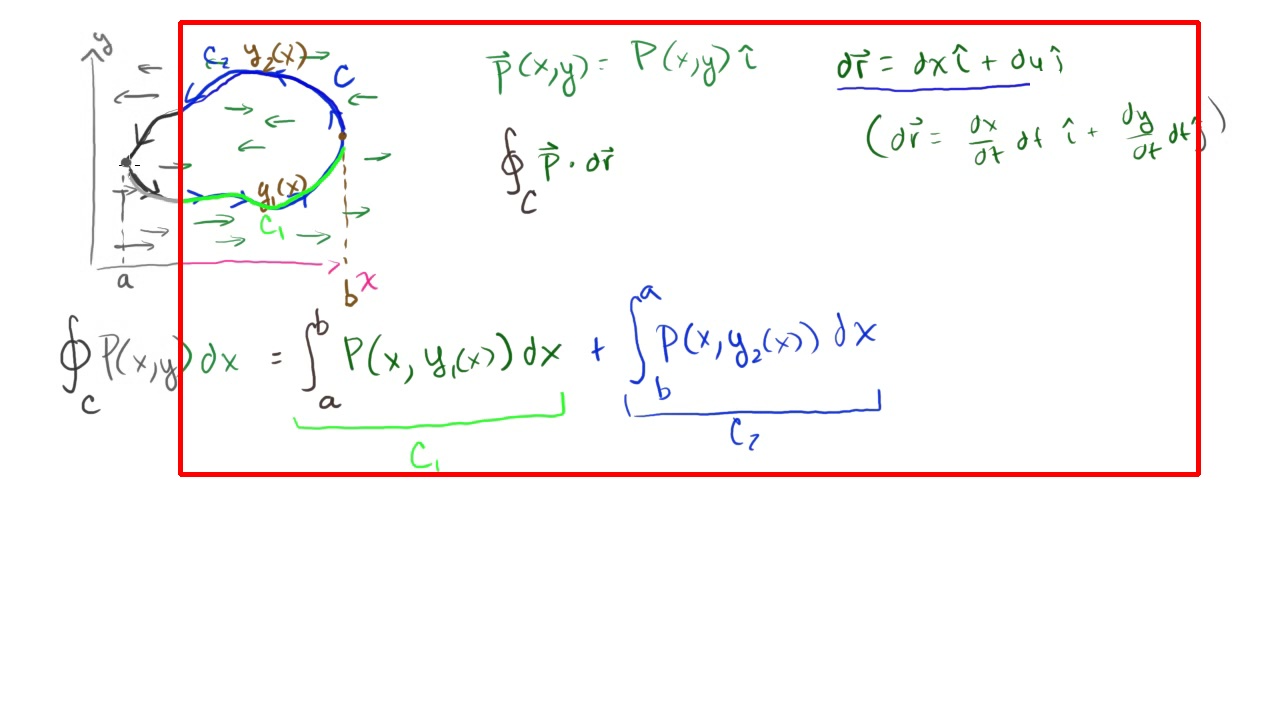 y
C₂ y₂(x)
C
y₁(x)
C₁
a
b
x
P⃗(x,y) = P(x,y) î
dr⃗ = dx î + dy ĵ
(dr⃗ = dx/dt dt î + dy/dt dt ĵ)
∮_C P⃗ · dr⃗
∮_C P(x,y) dx = ∫_a^b P(x, y₁(x)) dx + ∫_b^a P(x, y₂(x)) dx
C₁
C₂